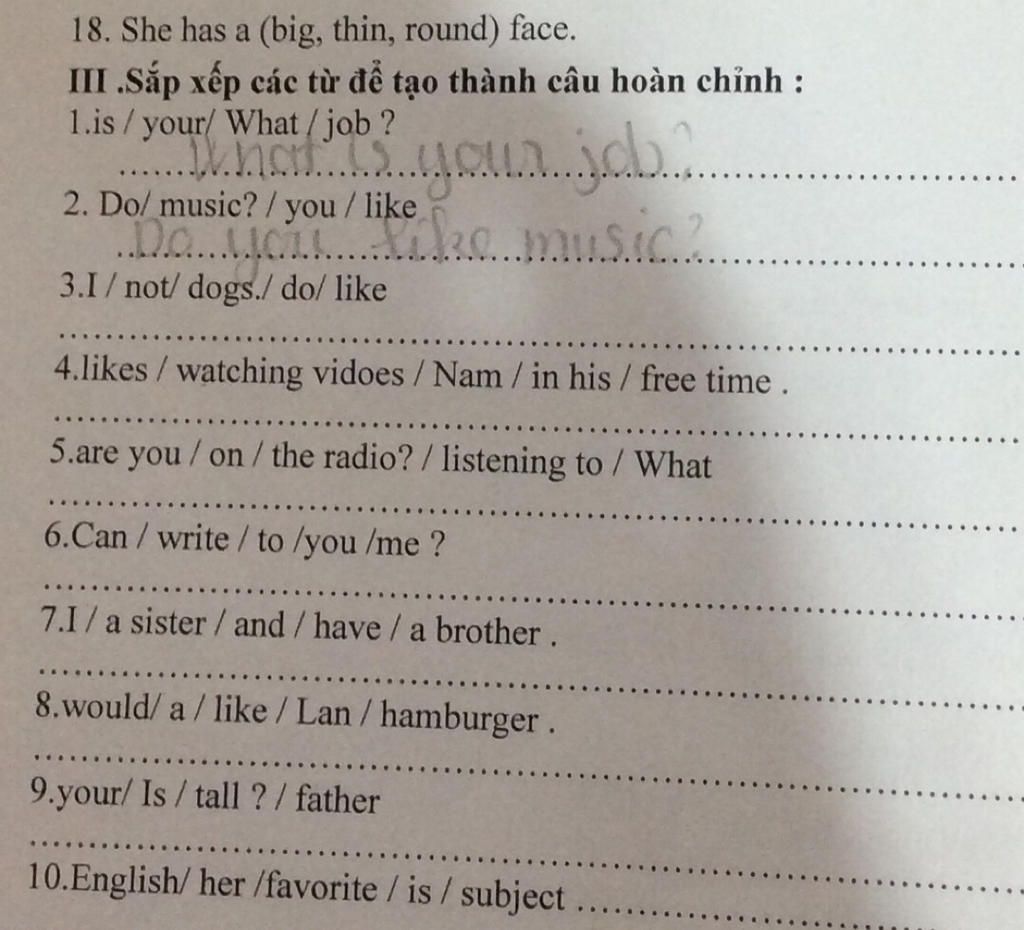 18. She has a (big, thin, round) face.
III .Sắp xếp các từ để tạo thành câu hoàn chỉnh :
1.is / your/ What / job ?
What is your job?
2. Do/ music? / you / like
Do you like music?
3.I / not/ dogs./ do/ like
4.likes / watching vidoes / Nam / in his / free time .
5.are you / on / the radio? / listening to / What
6.Can / write / to /you /me ?
7.I / a sister / and / have / a brother .
8.would/ a / like / Lan / hamburger .
9.your/ Is / tall ? / father
10.English/ her /favorite / is / subject